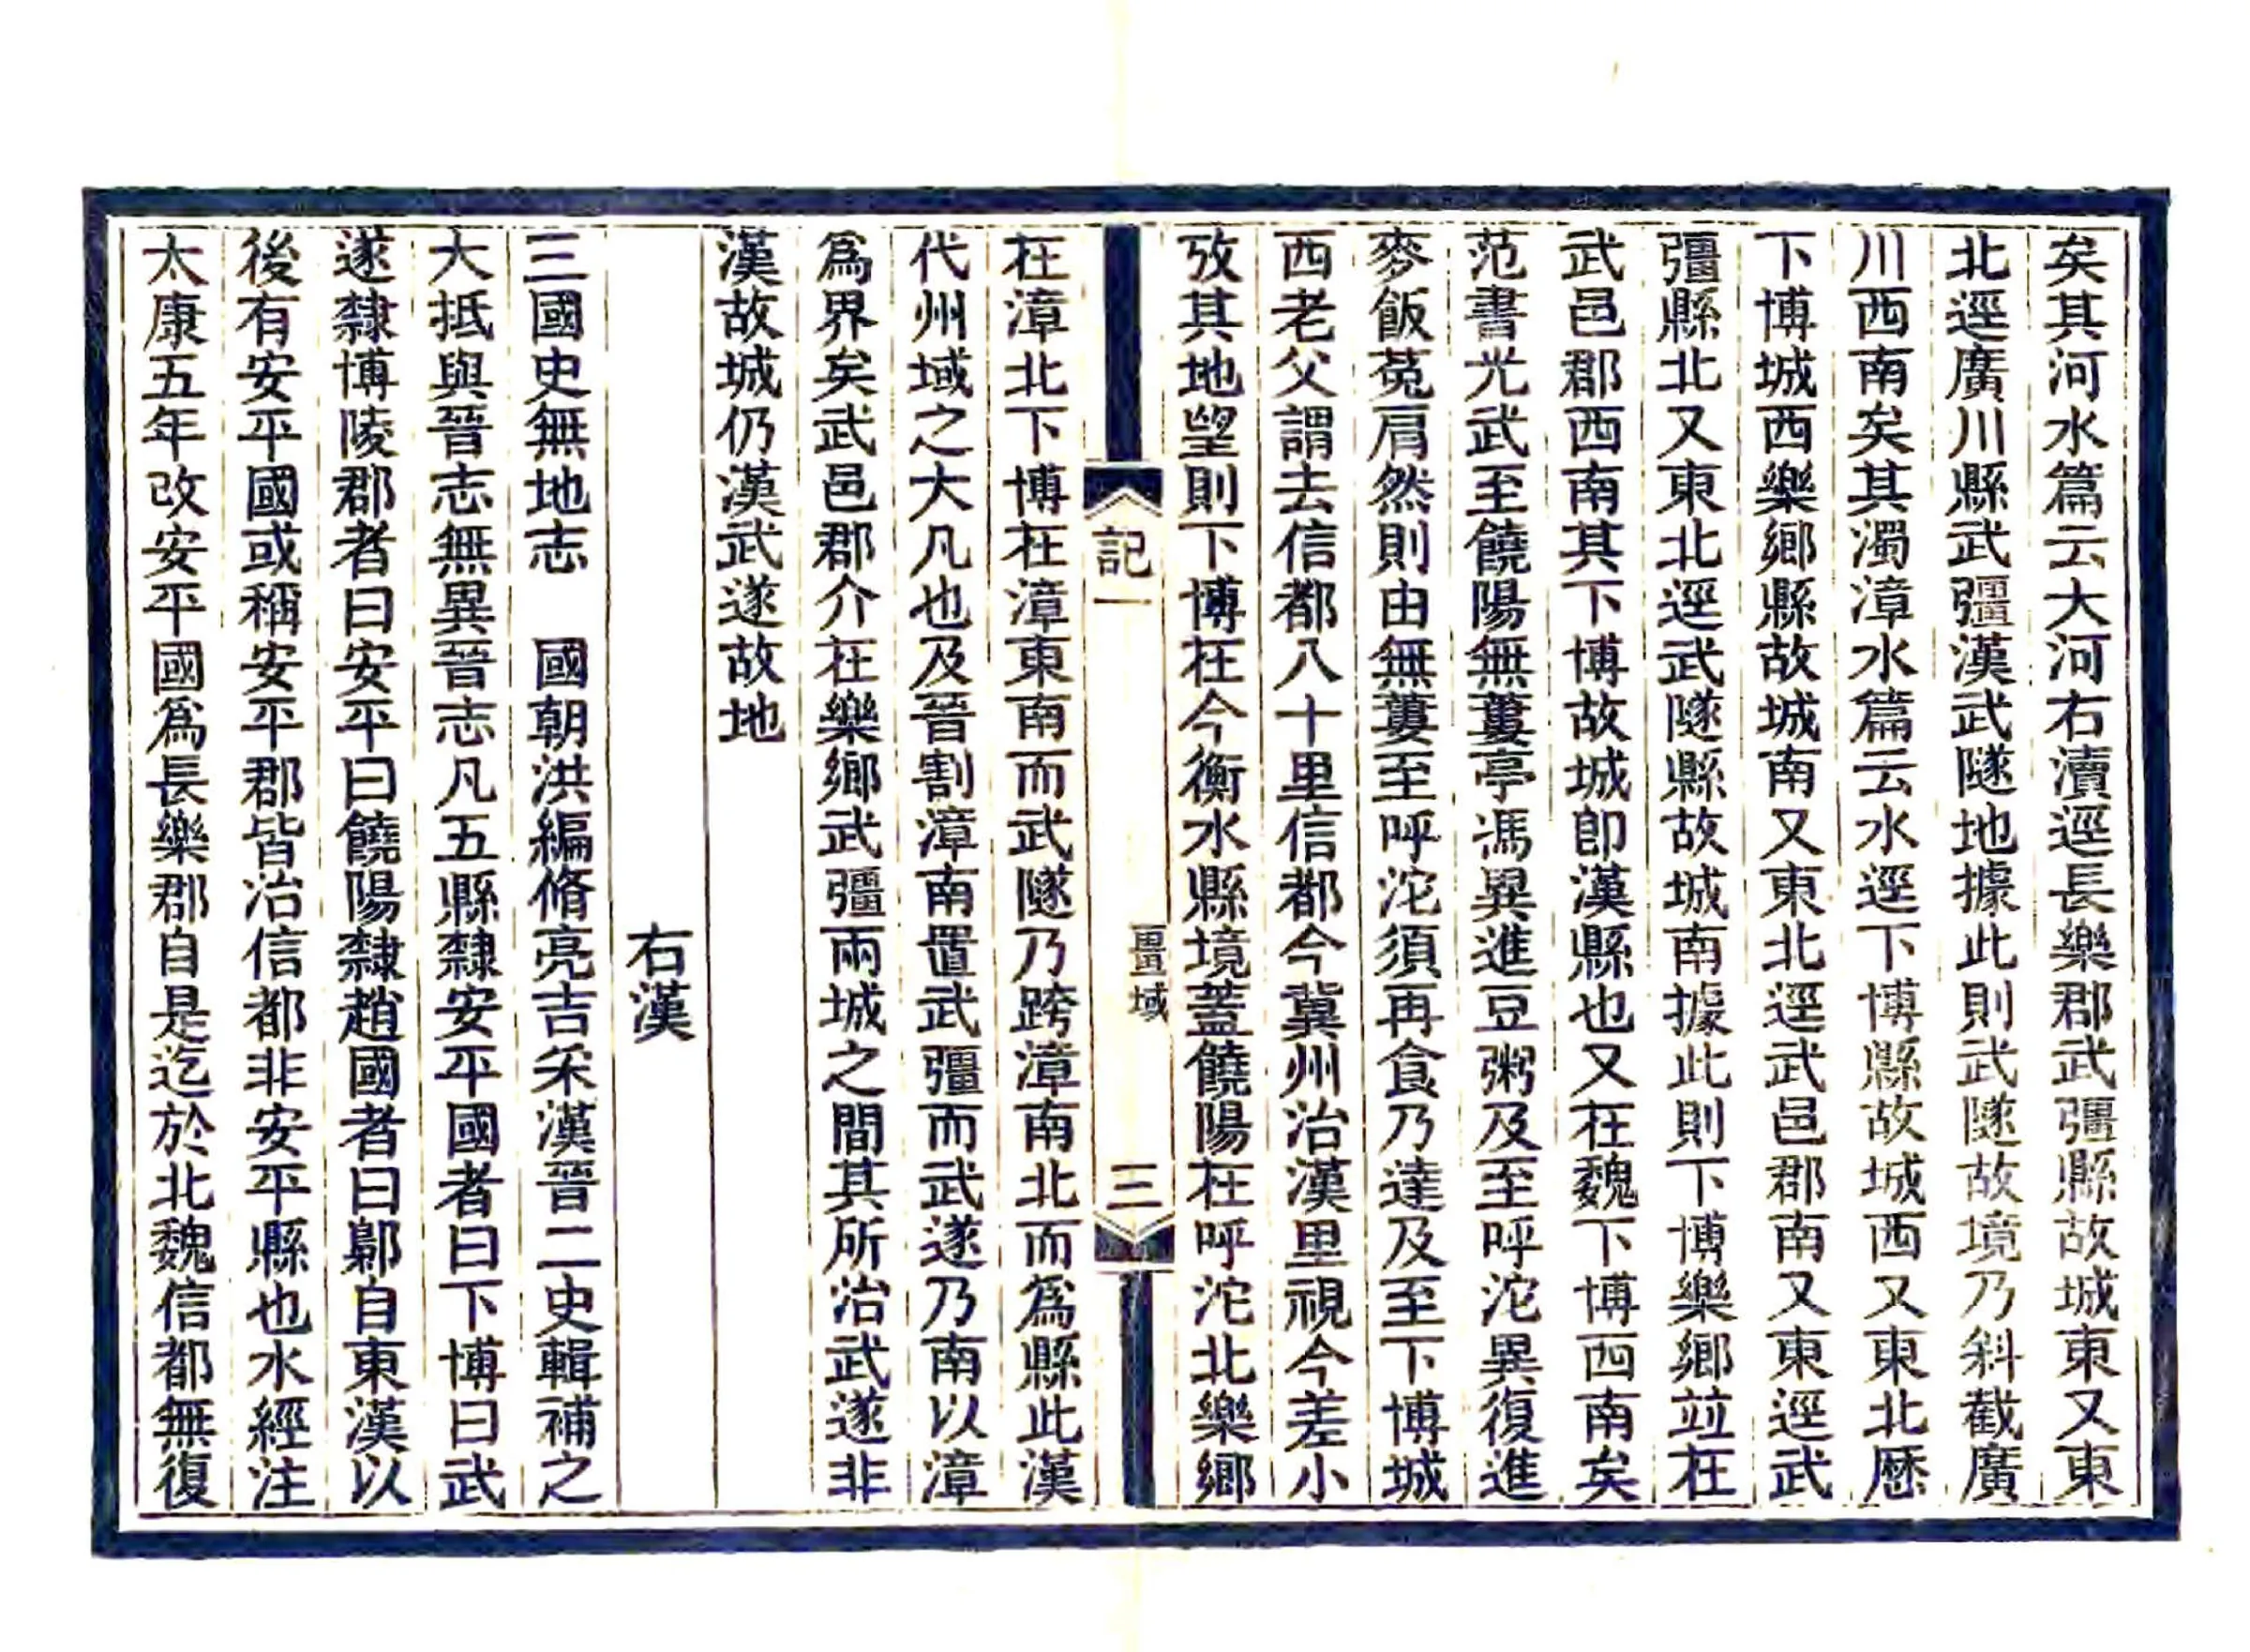 矣其河水篇云大河右瀆逕長樂郡武彊縣故城東又東
北逕廣川縣武彊漢武隧地據此則武隧故境乃斜截廣
川西南矣其濁漳水篇云水逕下博縣故城西又東北歷
下博城西樂鄉縣故城南又東北逕武邑郡南又東逕武
彊縣北又東北逕武隧縣故城南據此則下博樂鄉竝在
武邑郡西南其下博故城卽漢縣也又在魏下博西南矣
范書光武至饒陽無蔞亭馮異進豆粥及至呼沱異復進
麥飯菟肩然則由無蔞至呼沱須再食乃達及至下博城
西老父謂去信都八十里信都今冀州治漢里視今差小
攷其地望則下博在今衡水縣境蓋饒陽在呼沱北樂鄉
記一
畺域
三
在漳北下博在漳東南而武隧乃跨漳南北而爲縣此漢
代州域之大凡也及晉割漳南置武彊而武遂乃南以漳
爲界矣武邑郡介在樂鄉武彊兩城之間其所治武遂非
漢故城仍漢武遂故地
右漢
三國史無地志　國朝洪編脩亮吉采漢晉二史輯補之
大抵與晉志無異晉志凡五縣隸安平國者曰下博曰武
遂隸博陵郡者曰安平曰饒陽隸趙國者曰鄡自東漢以
後有安平國或稱安平郡皆治信都非安平縣也水經注
太康五年改安平國爲長樂郡自是迄於北魏信都無復